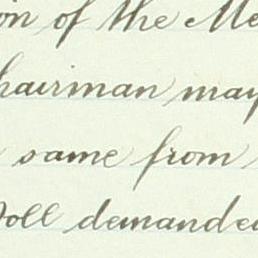 on of the Me
hairman may
same from
Poll demanded